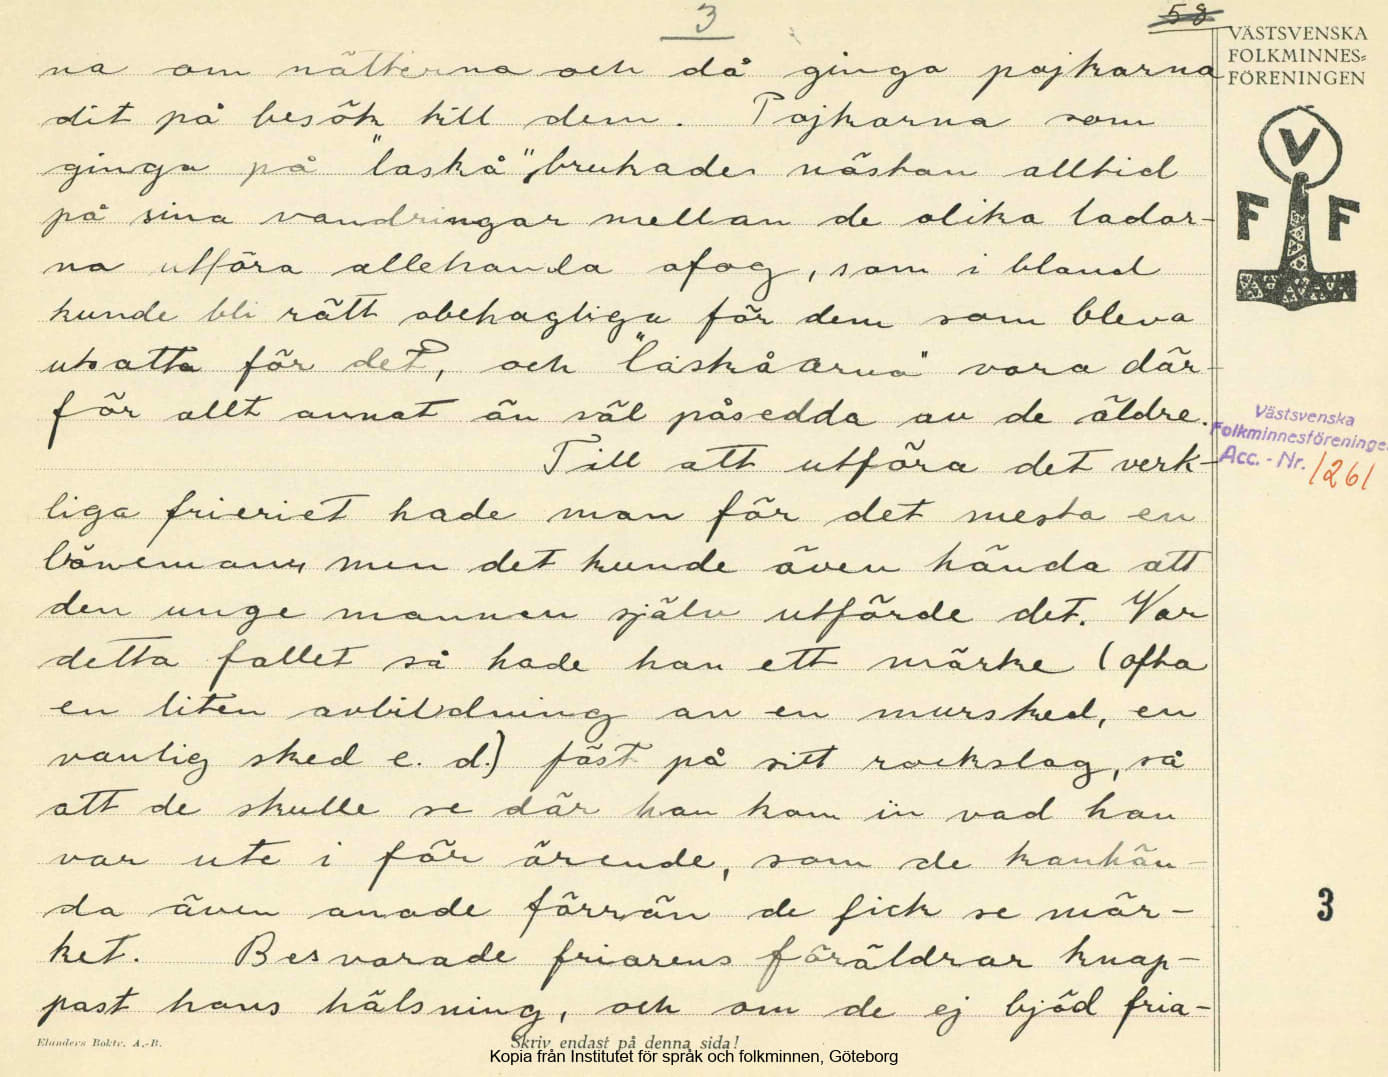 3
58
VÄSTSVENSKA
FOLKMINNES=
FÖRENINGEN
V
F F
na om nätterna och då ginga pojkarna
dit på besök till dem. Pojkarna som
ginga på "laskå" brukades nästan alltid
på sina vandringar mellan de olika lador-
na utföra allehanda ofog, som i bland
kunde bli rätt obehagliga för dem som bleva
utsatta för det, och "laskåarna" vara där-
för allt annat än väl påsedda av de äldre.
Till att utföra det verk-
liga frieriet hade man för det mesta en
böneman, men det kunde även hända att
den unge mannen själv utförde det. Var
detta fallet så hade han ett märke (ofta
en liten avbildning av en mursked, en
vanlig sked e. d.) fäst på sitt rockslag, så
att de skulle se där han kom in vad han
var ute i för ärende, som de kanhän-
da även anade förrän de fick se mär-
ket. Besvarade friarens föräldrar knap-
past hans hälsning, och om de ej bjöd fria-
Västsvenska
Folkminnesföreningen
Acc. - Nr. 1261
3
Elanders Boktr. A.-B.
Skriv endast på denna sida!
Kopia från Institutet för språk och folkminnen, Göteborg